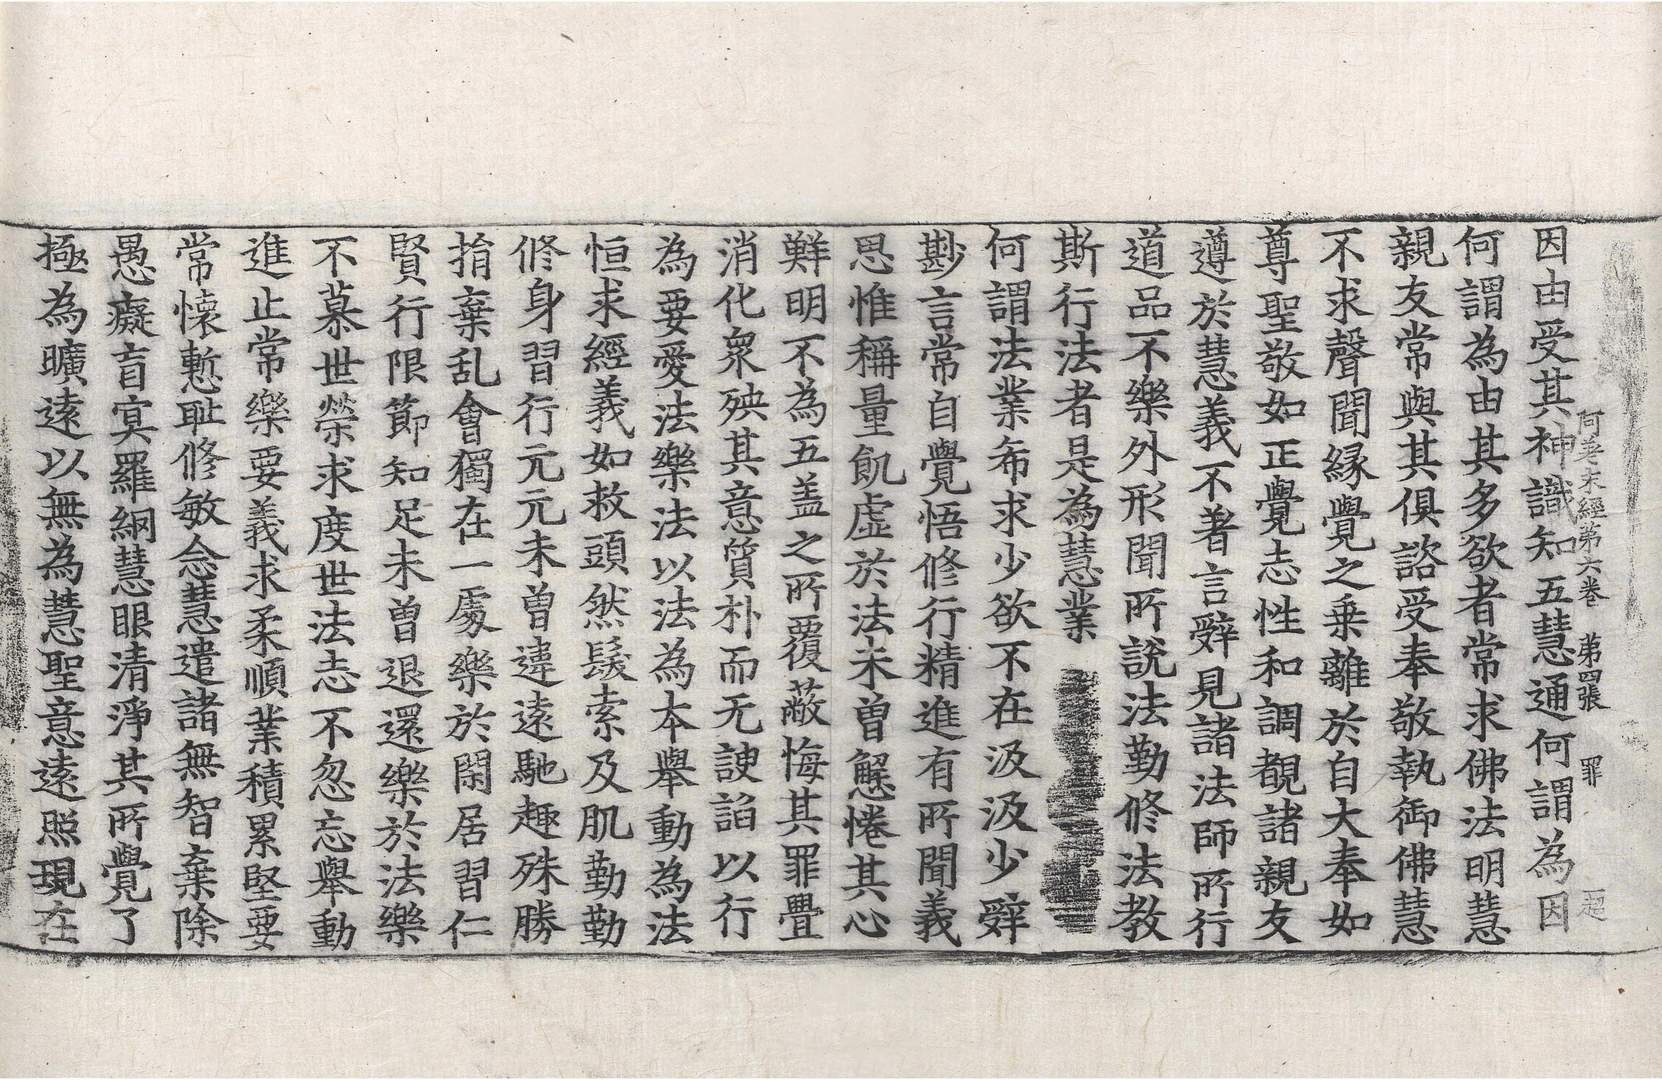 因由受其神識知五慧通何謂為因
何謂為由其多欲者常求佛法明慧
親友常與其俱諮受奉敬執御佛慧
不求聲聞緣覺之乗離於自大奉如
尊聖敬如正覺志性和調覩諸親友
遵於慧義不著言辭見諸法師所行
道品不樂外形聞所說法勤修法教
斯行法者是為慧業
何謂法業布求少欲不在汲汲少辤
尠言常自覺悟修行精進有所聞義
思惟稱量飢虛於法未曾懈惓其心
鮮明不為五盖之所覆蔽悔其罪舋
消化衆殃其意質朴而无諛諂以行
為要愛法樂法以法為本舉動為法
恒求經義如救頭然髮索及肌勤勤
修身習行元元未曾違遠馳趣殊勝
捐棄乱會獨在一處樂於閑居習仁
賢行限節知足未曾退還樂於法樂
不慕世榮求度世法志不忽忘舉動
進止常樂要義求柔順業積累堅要
常懷慙恥修敏念慧遣諸無智棄除
愚癡盲冥羅網慧眼清淨其所覺了
極為曠遠以無為慧聖意遠照現在
阿差末經第六卷 第四張 罪